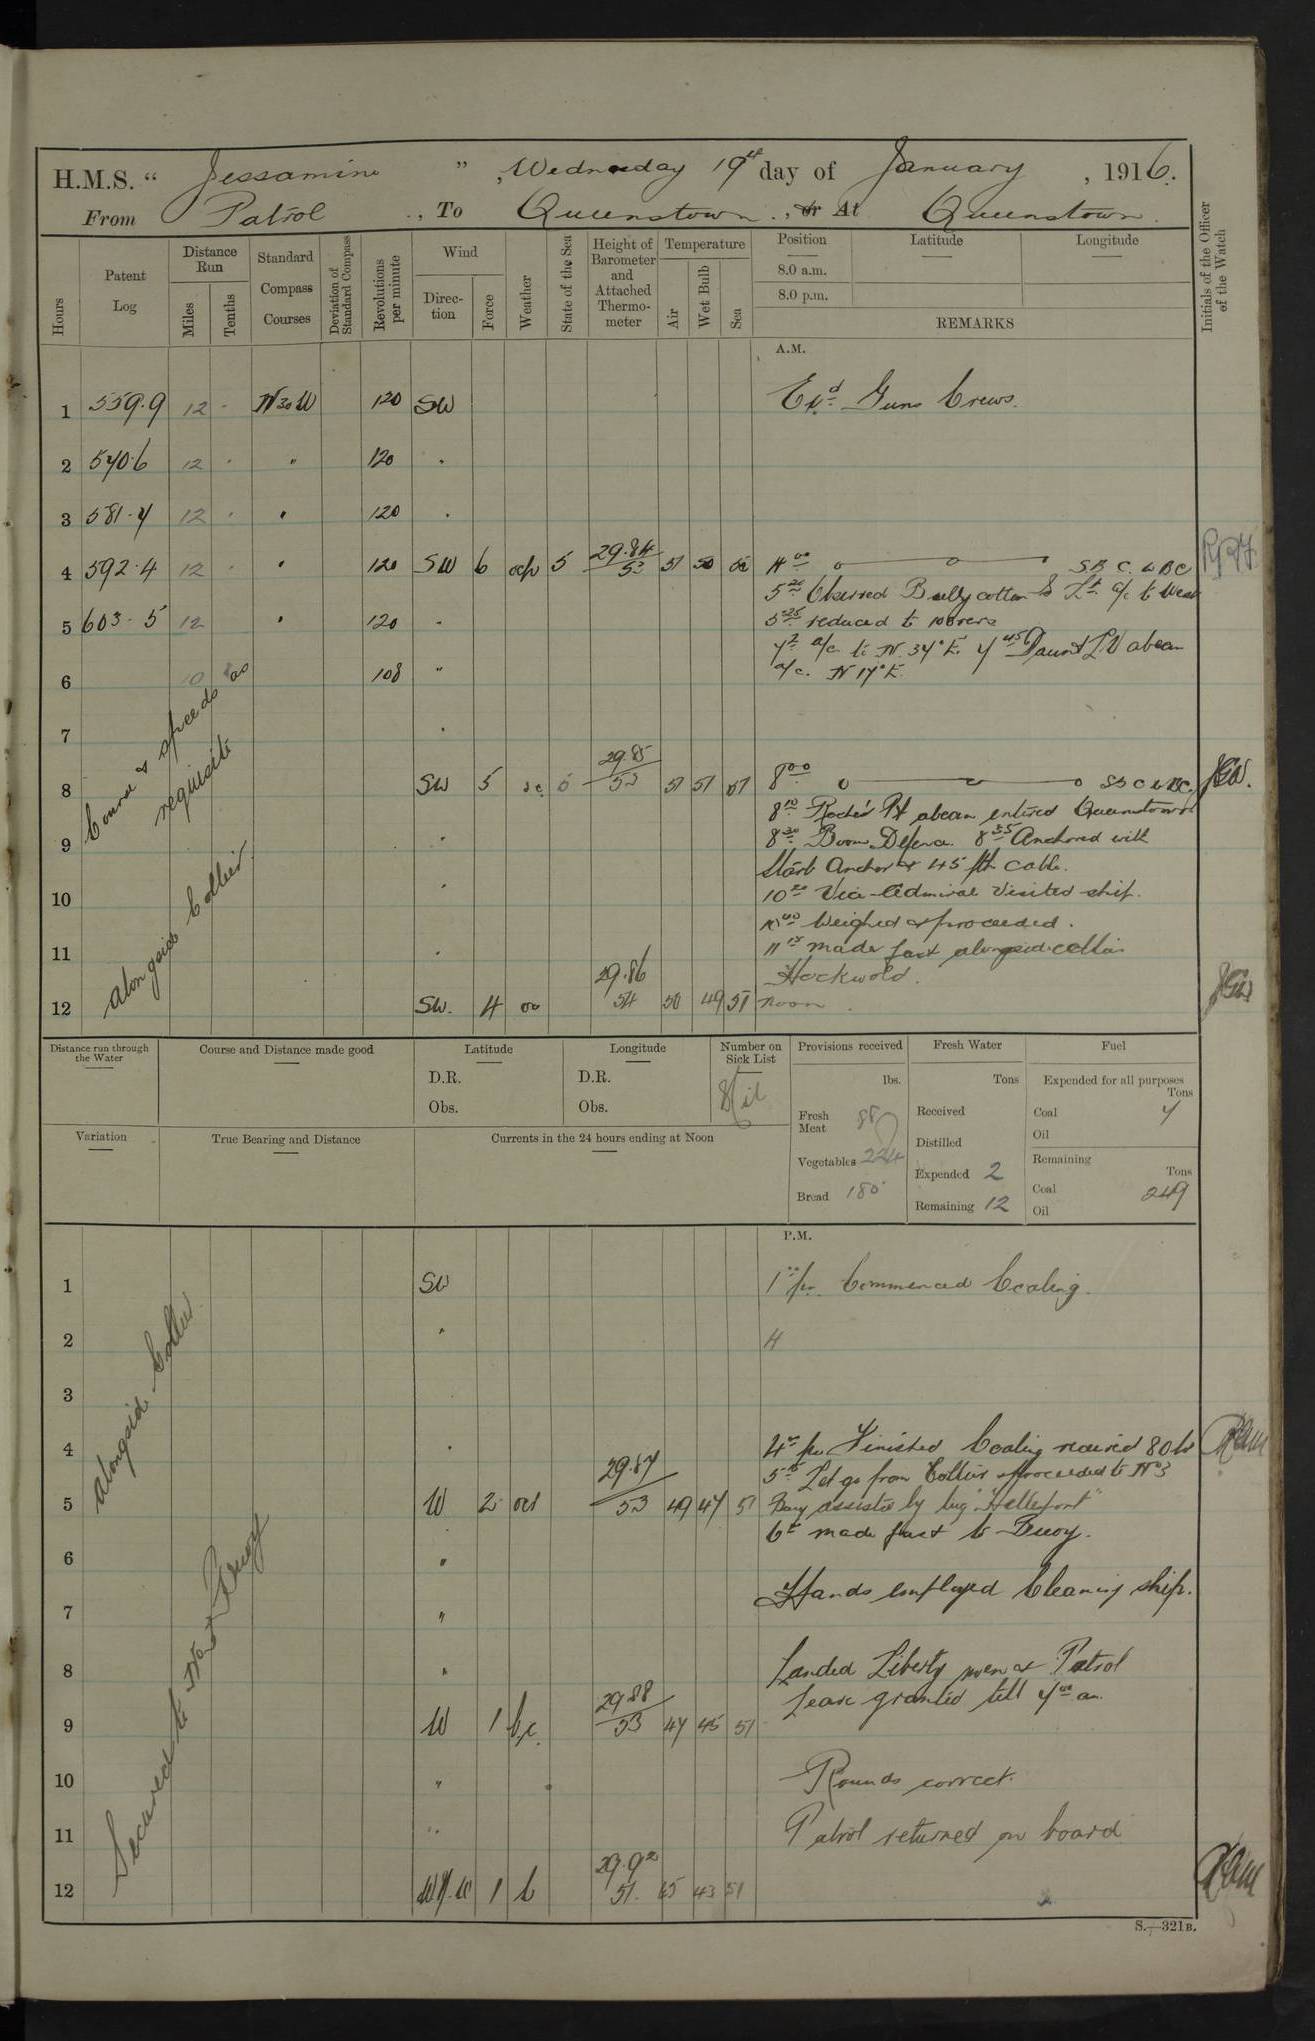 H.M.S. " Jessamine ", Wednesday 19th day of January, 1916.
From Patrol, To Queenstown, or At Queenstown.
Hours
Patent Log
Distance Run
Miles
Tenths
Standard Compass Courses
Deviation of Standard Compass
Revolutions per minute
Wind
Direction
Force
Weather
State of the Sea
Height of Barometer and Attached Thermometer
Temperature
Air
Wet Bulb
Sea
Position
Latitude
Longitude
8.0 a.m.
8.0 p.m.
REMARKS
Initials of the Officer of the Watch
A.M.
1 559.9 12 · N30W 120 SW Exd Guns Crews.
2 570.6 12 · " 120 "
3 581.4 12 · " 120 "
4 592.4 12 · " 120 SW 6 5 29.84 53 51 50 S B C & BC
5 20 Observed Ballycotton Is Lt a/c to West
5 603.5 12 " 120 "
5 25 reduced to 108 revs
a/c to N 34° E. Daunt LV abeam
6 10 108 " a/c. N 17° E.
Course & speeds as requisite
7 "
8 SW 5 29.85 53 51 51 51 8 00 S B C & BC. JGW.
8 10 Roche's Pt abeam entered Queenstown
9 "
8 30 Boom Defence. 8 35 Anchored with
Starb Anchor & 45 fth cable.
10 "
10 20 Vice-Admiral visited ship.
weighed & proceeded.
11 "
11 15 made fast alongside collier
Hockwold.
12 SW. 4 29.86 54 50 49 51 noon JGW
alongside Collier
Distance run through the Water
Course and Distance made good
Latitude
D.R.
Obs.
Longitude
D.R.
Obs.
Number on Sick List
Nil
Provisions received
lbs.
Fresh Meat 88
Vegetables 224
Bread 180
Fresh Water
Tons
Received
Distilled
Expended 2
Remaining 12
Fuel
Expended for all purposes
Tons
Coal 7
Oil
Remaining
Tons
Coal 249
Oil
Variation
True Bearing and Distance
Currents in the 24 hours ending at Noon
P.M.
1 SW 1 00 pm. Commenced Coaling.
2 " 4
3
4 " 4 pm Finished Coaling received 80 to
alongside Collier
5 15 Let go from Collier & proceeded to No 3
5 W 2 29.87 53 49 47 51 Buoy assisted by tug "Hellespont"
6 made fast to Buoy.
6 "
Hands employed Cleaning ship.
7 "
8 " Landed Liberty men & Patrol
Leave granted till 7 00 am.
9 W 1 b.c. 29.88 53 47 45 51
Secured to No 3 Buoy
10 " Rounds correct.
11 " Patrol returned on board
12 1 b 29.92 51. 45 43 51
S.—321B.